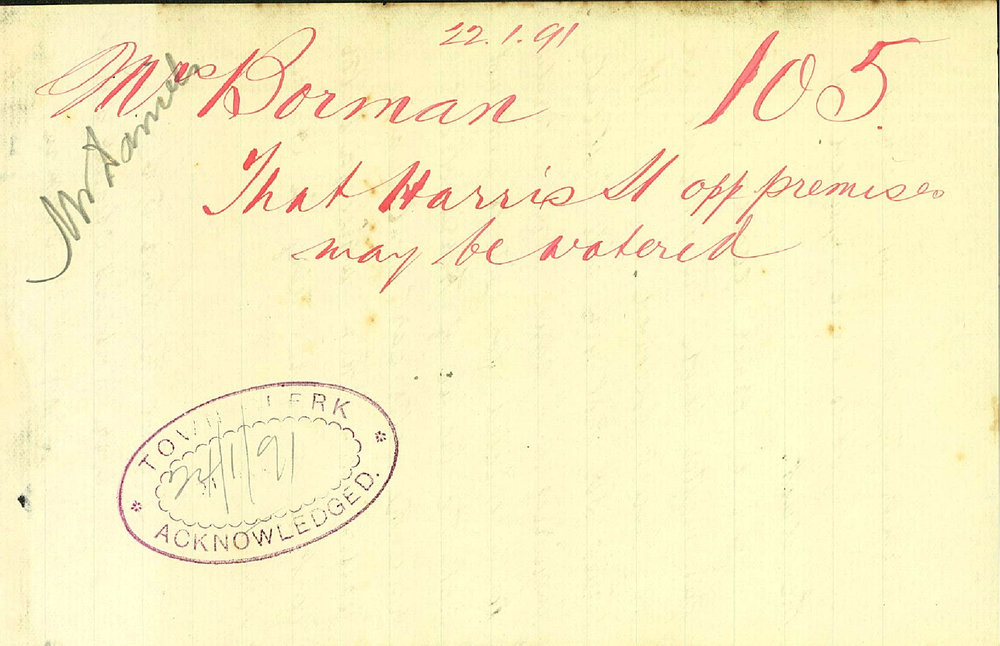 22.1.91
Mrs Borman 105.
Mr Daniels
That Harris St opp premises
may be watered
TOWN CLERK
24/1/91
ACKNOWLEDGED.